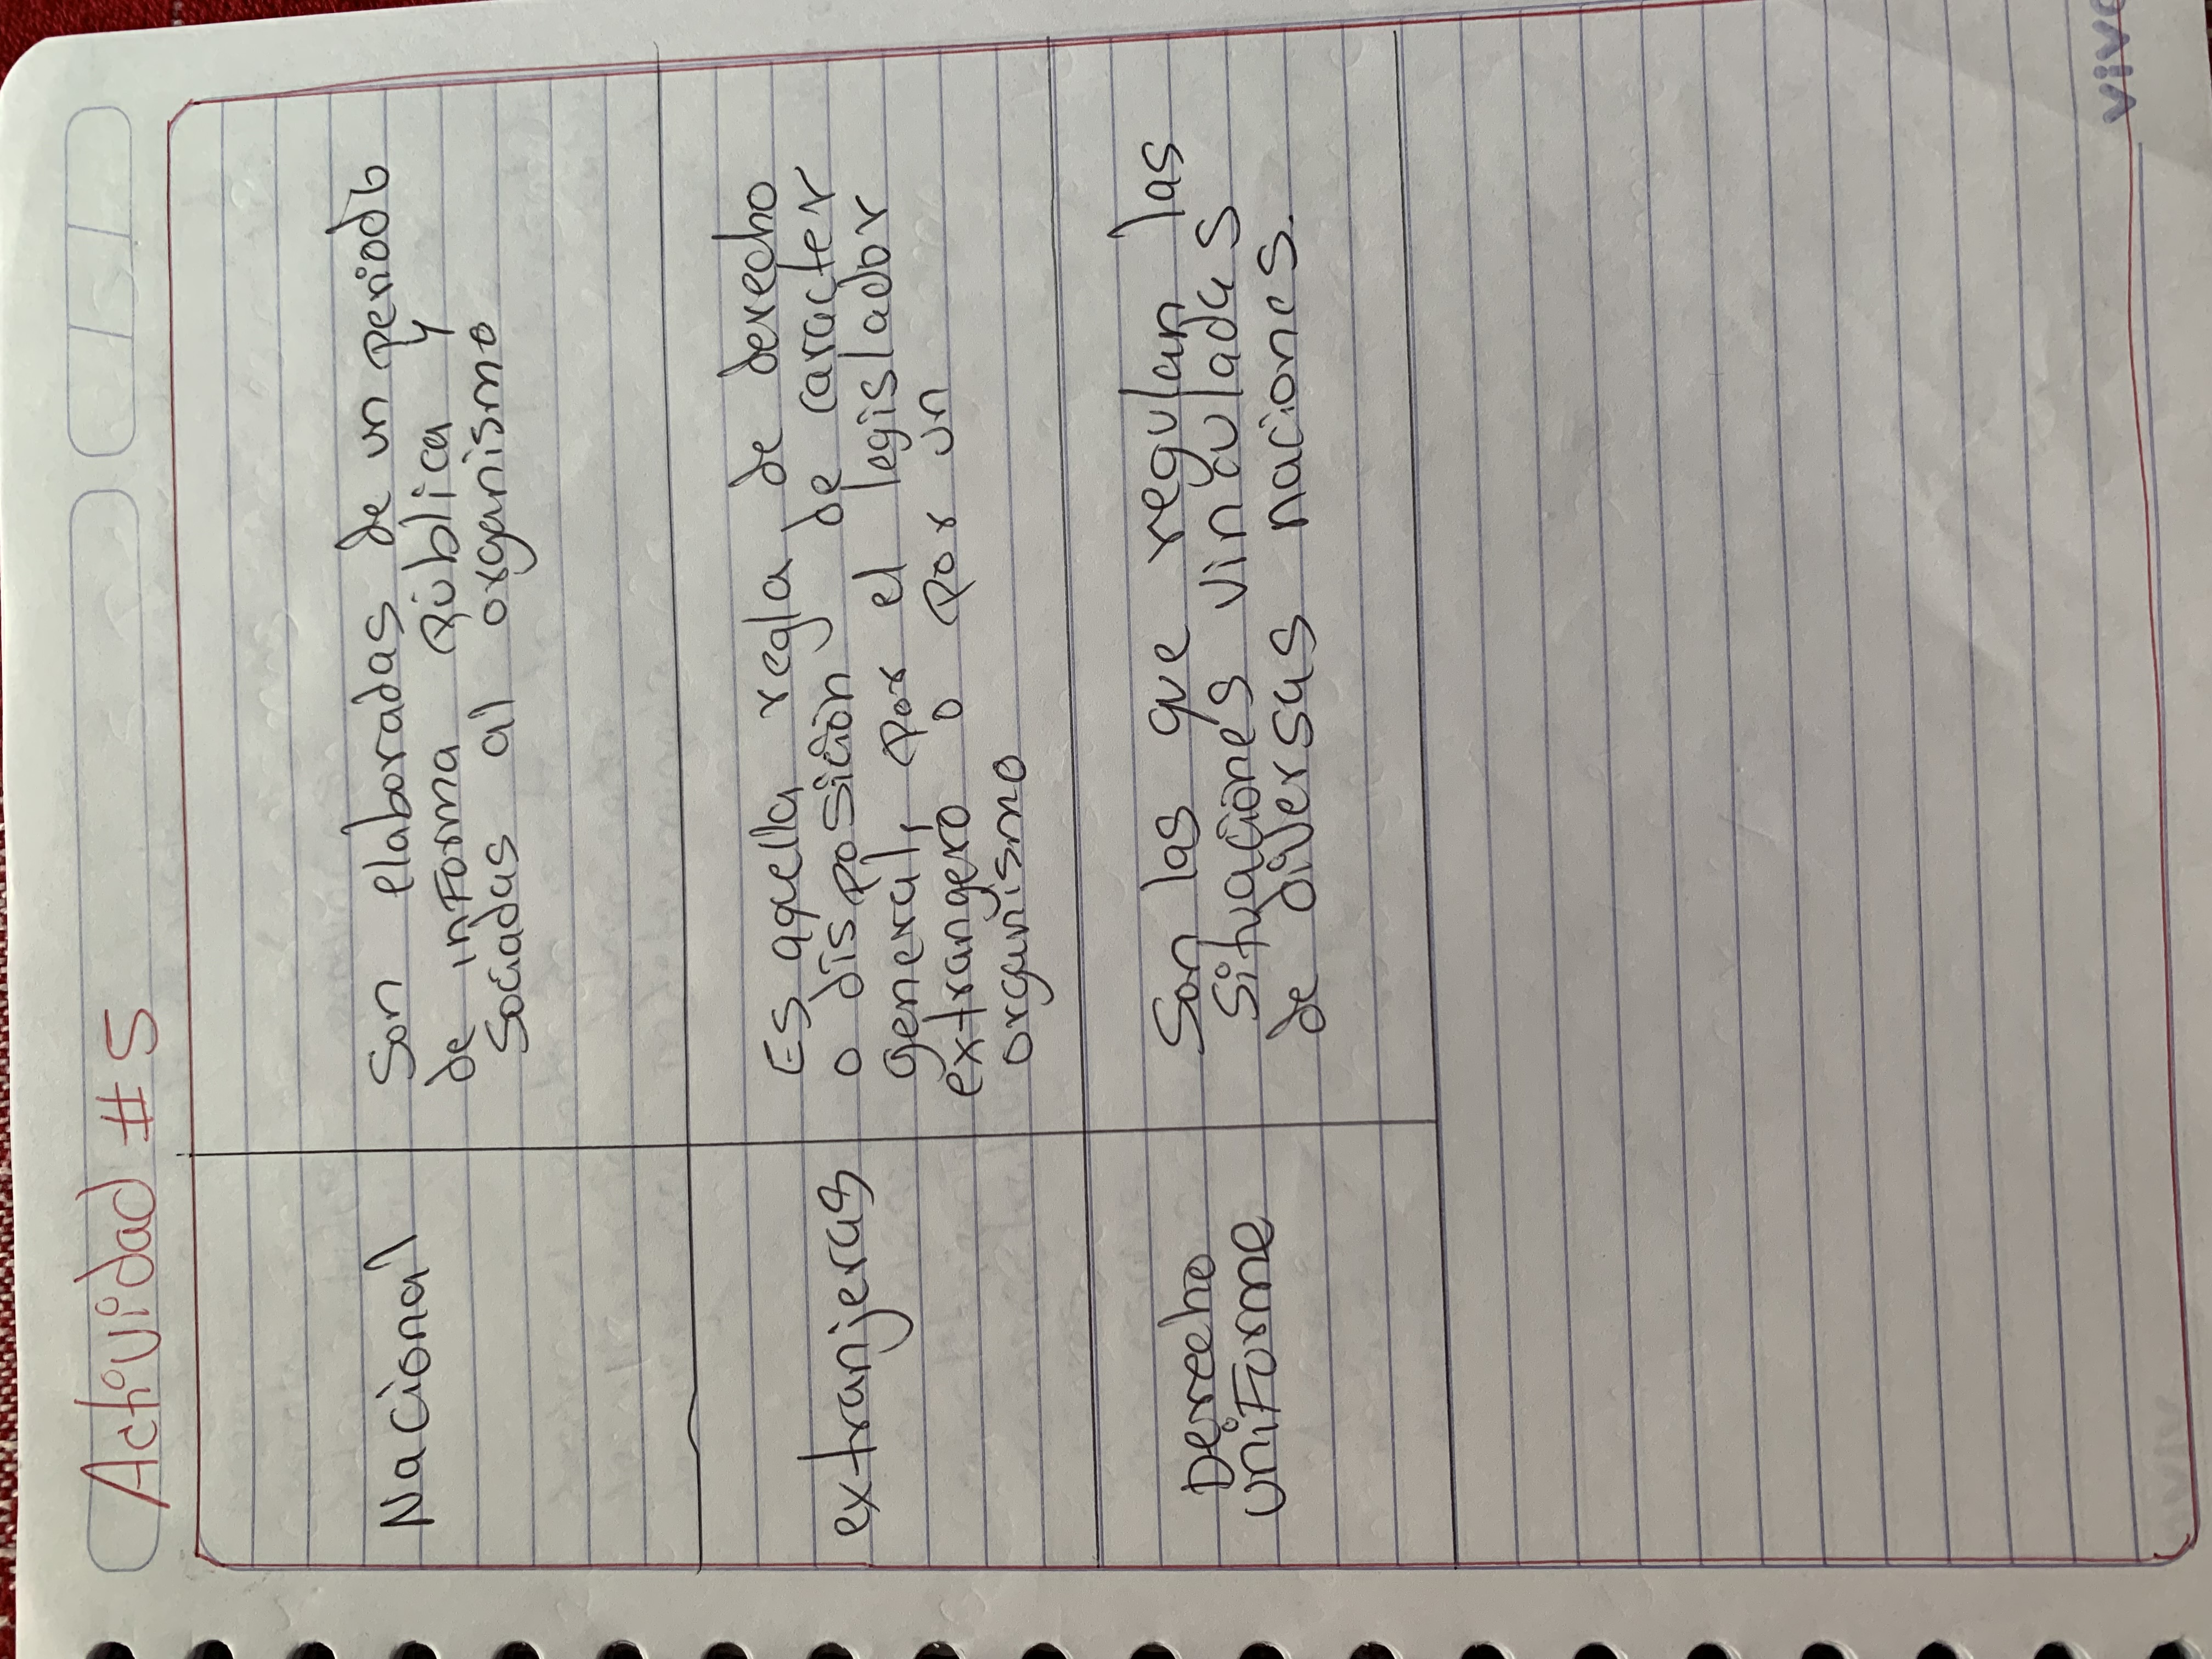 Actividad #5
Nacional
Son elaboradas de un periodo
de inForma Pública y
Sociadas al organismo
extranjeras
Es aquella regla de derecho
o disposición de caracter
general, por el legislador
extrangero o por un
organismo
Derecho
uniForme
Son las que regulan las
Situaciones vinculadas
de diversas naciones.